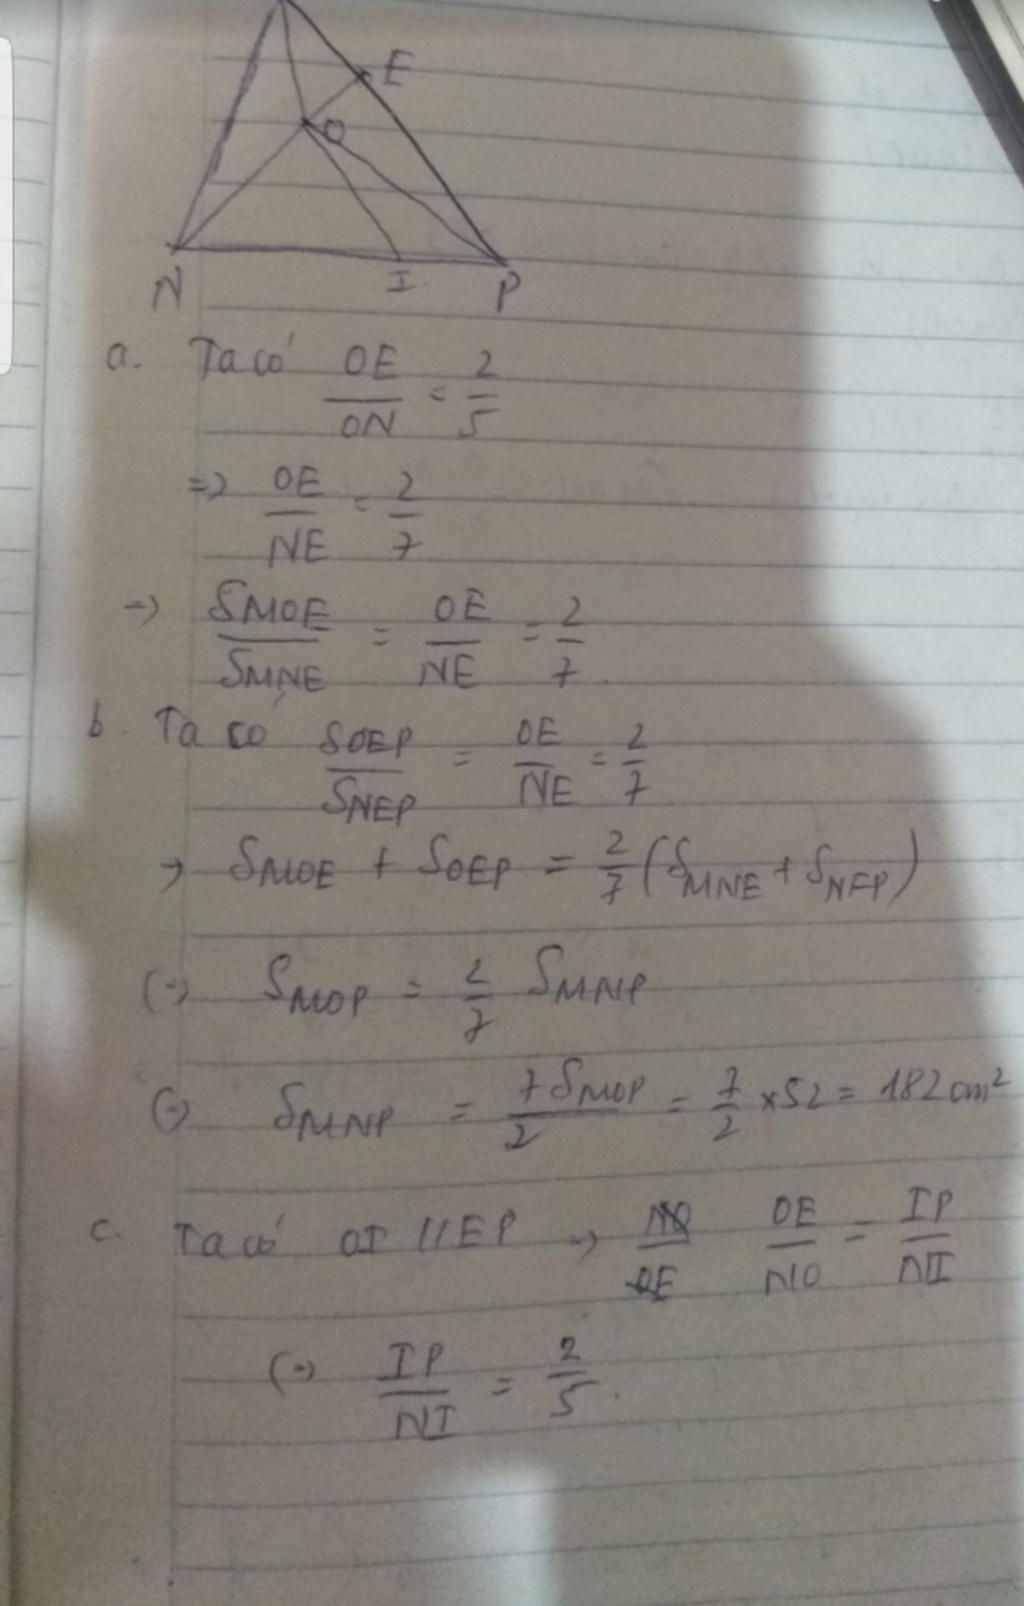 E
O
N I P
a. Ta có OE/ON = 2/5
=> OE/NE = 2/7
=> SMOE/SMNE = OE/NE = 2/7.
b. Ta có SOEP/SNEP = OE/NE = 2/7
=> SMOE + SOEP = 2/7 (SMNE + SNEP)
(=) SMOP = 2/7 SMNP
(=) SMNP = 7SMOP/2 = 7/2 x 52 = 182 cm²
c. Ta có OI // EP => OE/NO = IP/NI
(=) IP/NI = 2/5.